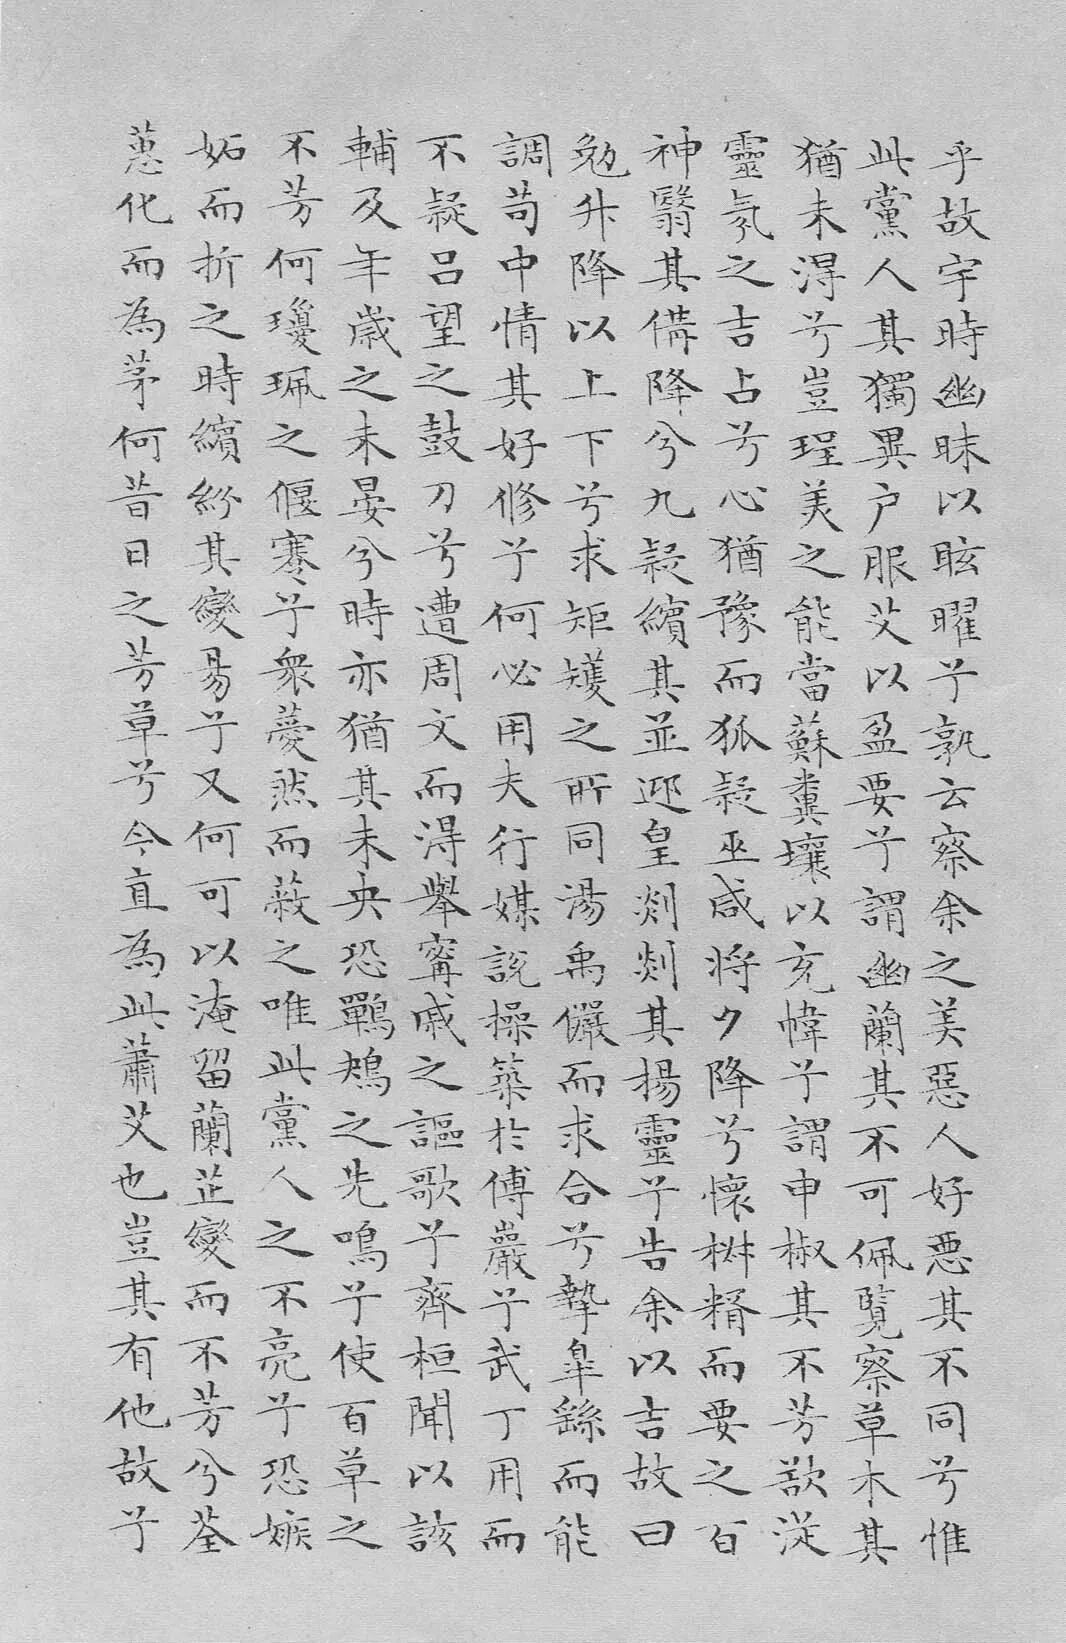 乎故宇時幽昧以眩曜兮孰云察余之美惡人好惡其不同兮惟
此黨人其獨異户服艾以盈要兮謂幽蘭其不可佩覽察草木其
猶未淂兮豈珵美之能當蘇糞壤以充幃兮謂申椒其不芳欲從
靈氛之吉占兮心猶豫而狐疑巫咸将夕降兮懷椒糈而要之百
神翳其備降兮九疑繽其並迎皇剡剡其揚靈兮告余以吉故曰
勉升降以上下兮求矩矱之所同湯禹儼而求合兮摯皋繇而能
調苟中情其好修兮何必用夫行媒説操築於傅巖兮武丁用而
不疑吕望之鼓刀兮遭周文而淂舉甯戚之謳歌兮齊桓聞以該
輔及年歲之未晏兮時亦猶其未央恐鷤鴂之先鳴兮使百草之
不芳何瓊珮之偃蹇兮衆薆然而蔽之唯此黨人之不亮兮恐嫉
妬而折之時繽紛其變易兮又何可以淹留蘭芷變而不芳兮荃
蕙化而為茅何昔日之芳草兮今直為此蕭艾也豈其有他故兮